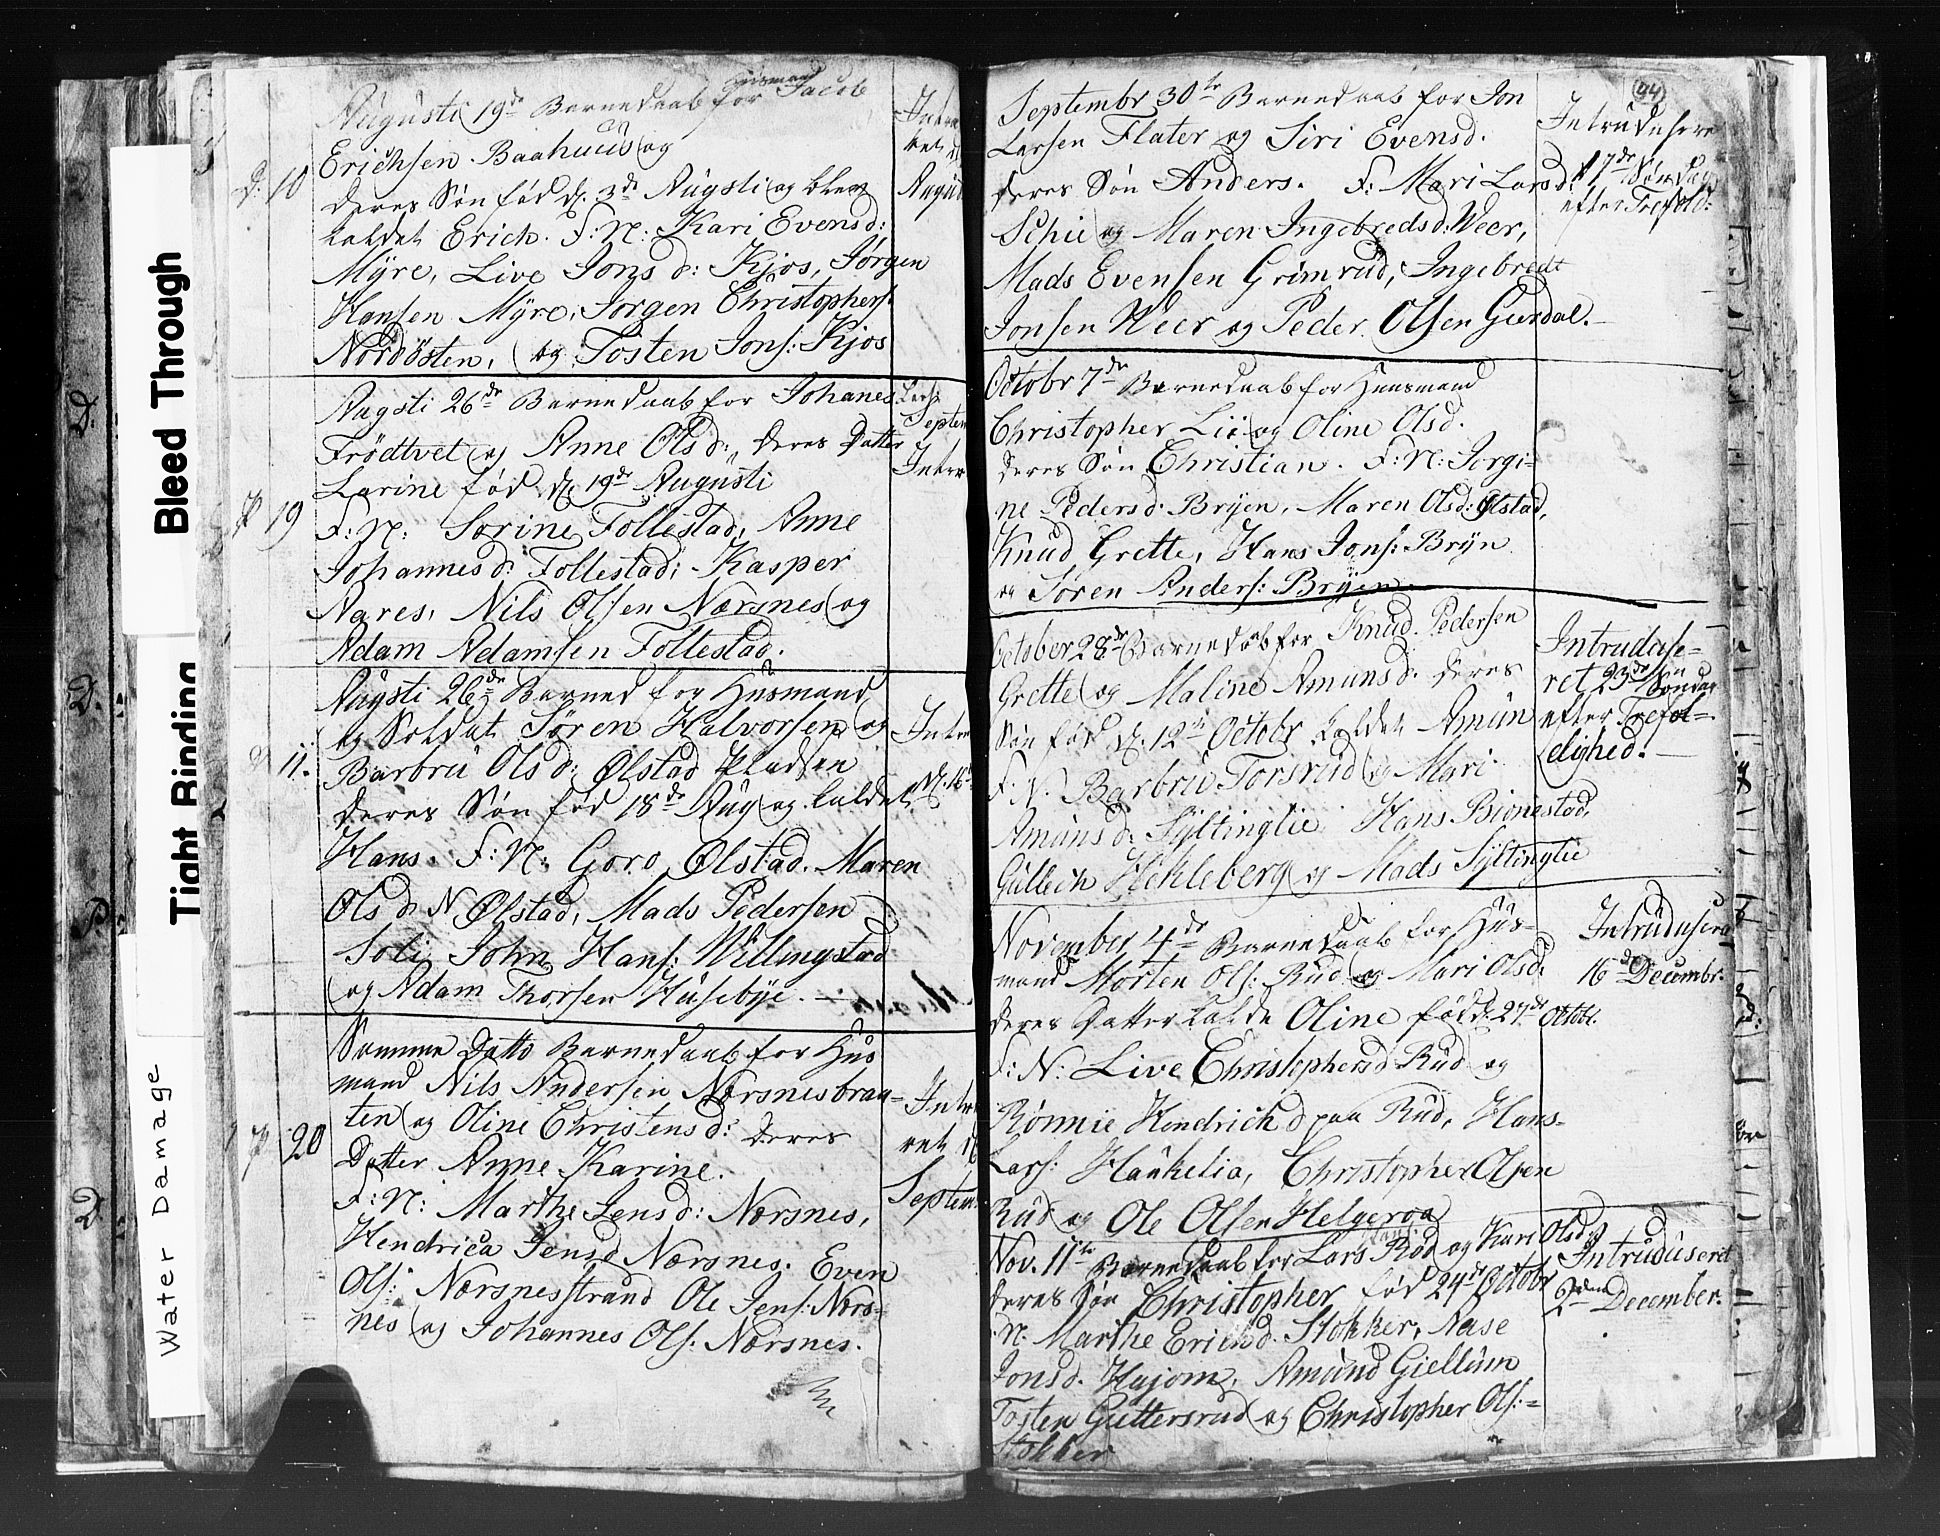 Bleed Through
Tight Binding
Water Damage
Augusti 19de Barnedaab for Huusmand Jacob
Erichsen Baahuus og
D. 10
deres Søn fød d. 3de Augsti og blev
kaldet Erich. F: N: Kari Evensd:
Myre, Live Jonsd: Kjos, Jørgen
Hansen Myre, Jørgen Christophers:
Nordösten, og Tosten Jons: Kjos
Augsti 26de Barnedaab for Johanes Lars:
Frödtvet og Anne Olsd: deres Datter
Larine fød d. 19de Augusti
P 19
F: N: Sørine Follestad, Anne
Johannesd: Follestad; Kasper
Aares, Nils Olsen Nærsnes og
Adam Adamsen Follestad.
Augsti 26de Barned for Husmand
og Soldat Søren Halvorsen og
11.
Barbru Olsd: Ølstad Pladsen
deres Søn fød 18de Aug og kaldet
Hans. F: N: Goro Ølstad. Maren
Olsd N Ølstad, Mads Pedersen
Soli, John Hans: Willingstad
og Adam Thorsen Husebye. —
Samme Datto Barnedaab for Hus
mand Nils Andersen Nærsnesbraa=
ten og Oline Christensd: deres
P 20
Datter Anne Karine.
F: N: Marthe Jensd: Nærsnes,
Hendrica Jensd Nærsnes. Even
Ols: Nærsnesstrand Ole Jens: Nærs=
nes og Johannes Ols: Nærsnes.
Septem
Septem
94
Septembr 30te Barnedaab for Jon
Larsen Flater og Siri Evensd.
deres Søn Anders. F: Mari Larsd:
Schie og Maren Ingebredsd: Weer,
Mads Evensen Grimsrud, Ingebredt
Jonsen Weer og Peder Olsen Gurdal. —
Intrudusere
d 7de Søndag
efter Trefold:
October 7de Barnedaab for Huusmand
Christopher Lie og Oline Olsd.
deres Søn Christian. F: N: Jorgi=
ne Pedersd. Bryen, Maren Olsd: Ølstad,
Knud Grette, Hans Jons: Bryn
og Søren Anders: Bryen
October 28de Barnedaab for Knud Pedersen
Grette og Maline Amunsd. deres
Søn fød d. 12te Octobr kaldet Amun
F: N. Barbru Torsrud og Mari
Amunsd: Syltinglie. Hans Bionestad,
Gullech Hekleberg og Mads Syltinglie
Intruduse=
ret 23de Søndag
efter Trefol=
dighed. —
November 4de Barnedaab for Hus=
mand Morten Ols: Rud og Mari Olsd:
deres Datter kalde Oline fød d. 27de Octobr.
F: N: Live Christophersd Rud og
Rönnie Hendrichd paa Rud, Hans=
Lars: Haukelia, Christopher Olsen
Rud og Ole Olsen Helgeroa
Intrudusere
16de Decembr.
Nov. 11te Barnedaab for Lars Rød og Kari Olsd:
deres Søn Christopher fød 24de Octobr
N: Marthe Erichsd. Stokker, Aase
Jonsd. Hajom, Amund Giellum
Tosten Guttersrud og Christopher Ols:=
Stokker
Intruduseret
2den December.